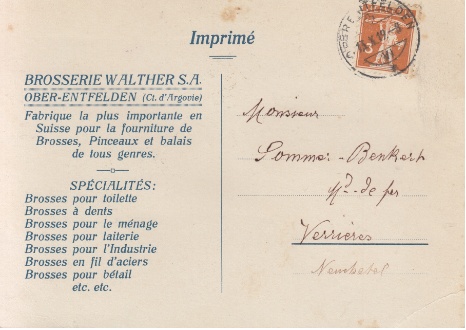 Imprimé
BROSSERIE WALTHER S.A.
OBER-ENTFELDEN (Ct. d'Argovie)
Fabrique la plus importante en
Suisse pour la fourniture de
Brosses, Pinceaux et balais
de tous genres.
SPÉCIALITÉS:
Brosses pour toilette
Brosses à dents
Brosses pour le ménage
Brosses pour laiterie
Brosses pour l'Industrie
Brosses en fil d'aciers
Brosses pour bétail
etc. etc.
OBERENTFELDEN
Monsieur
Sommer-Benkert
Md. de fer
Verrières
Neuchatel